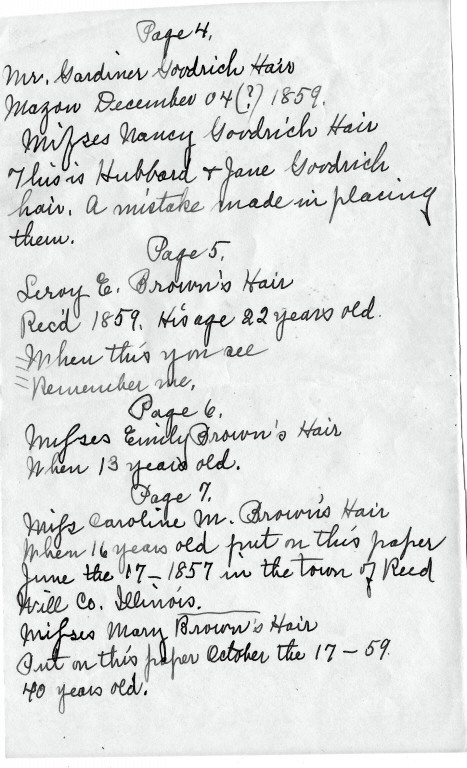 Page 4.
Mr. Gardiner Goodrich Hair
Mazon December 04(?) 1859.
Misses Nancy Goodrich Hair
This is Hubbard + Jane Goodrich
hair. A mistake made in placing
them.
Page 5.
Leroy E. Brown's Hair
Rec'd 1859. His age 22 years old.
"When this you see
"Remember me,
Page 6.
Misses Emily Brown's Hair
When 13 years old.
Page 7.
Miss Caroline M. Brown's Hair
When 16 years old put on this paper
June the 17 - 1857 in the town of Reed
Will Co. Illinois.
Misses Mary Brown's Hair
Put on this paper October the 17 - 59.
40 years old.